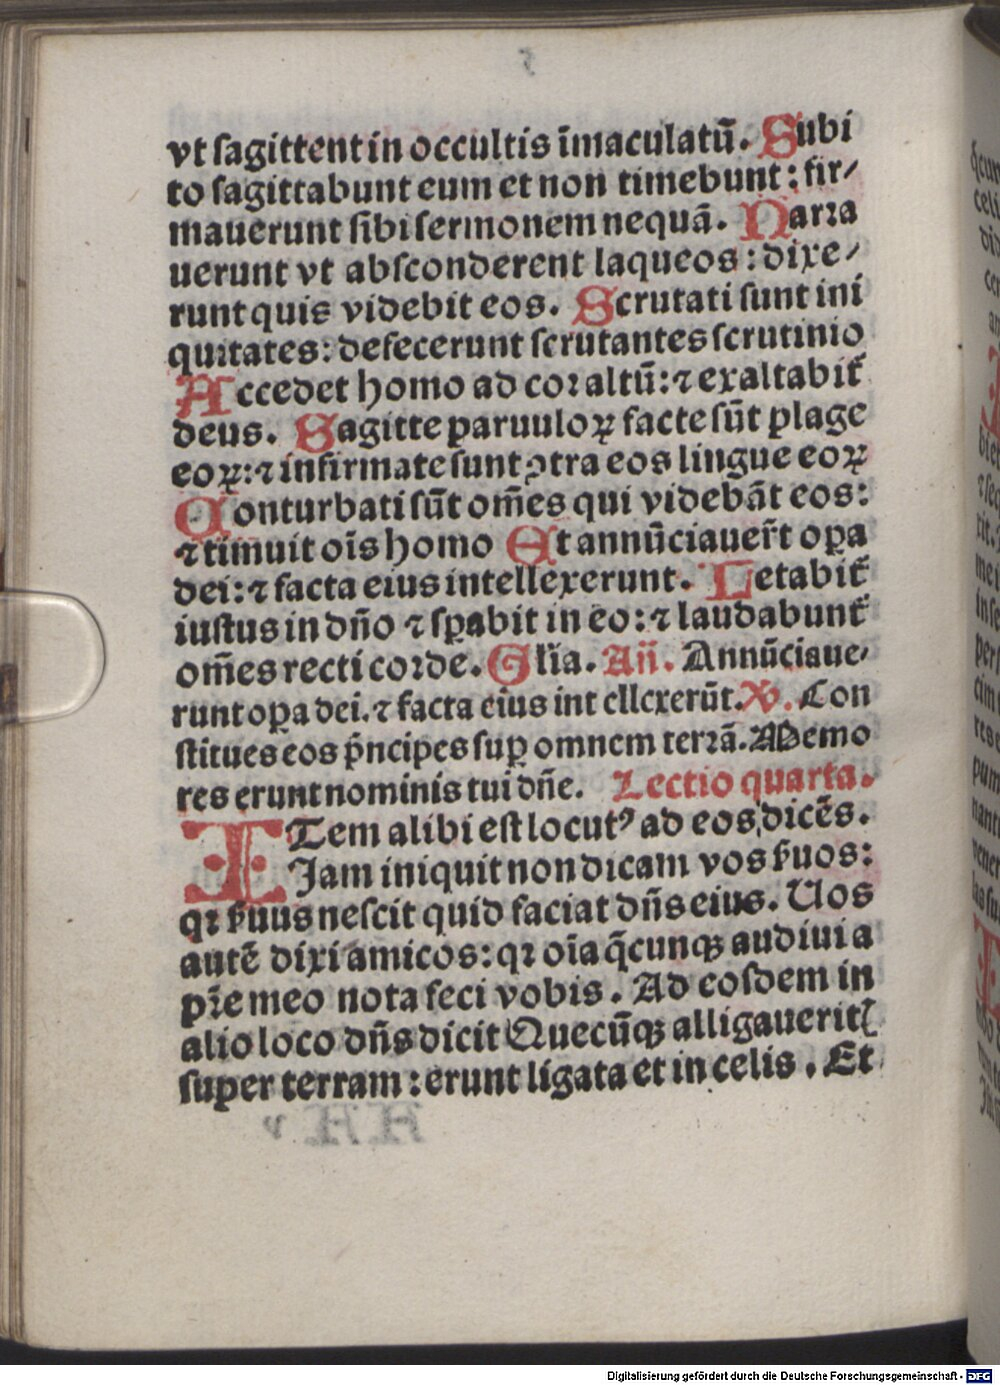 5
vt sagittent in occultis īmaculatū. Subi
to sagittabunt eum et non timebunt: fir⸗
mauerunt sibi sermonem nequā. Narra
uerunt vt absconderent laqueos: dixe⸗
runt quis videbit eos. Scrutati sunt ini
quitates: defecerunt scrutantes scrutinio
Accedet homo ad cor altū: ⁊ exaltabit᷑
deus. Sagitte paruuloꝝ facte sūt plage
eoꝝ: ⁊ infirmate sunt ꝯtra eos lingue eoꝝ
Conturbati sūt om̄es qui videbāt eos:
⁊ timuit oīs homo Et annūciauer̄t oꝑa
dei: ⁊ facta eius intellexerunt. Letabit᷑
iustus in dño ⁊ sꝑabit in eo: ⁊ laudabunt᷑
om̄es recti corde. Glīa. Añ. Annūciaue⸗
runt oꝑa dei. ⁊ facta eius int ellexerūt. V. Con
stitues eos pͥncipes suꝑ omnem terrā. Memo
res erunt nominis tui dñe. Lectio quarta.
ITem alibi est locutꝰ ad eos dicēs.
Jam iniquit non dicam vos ẜuos:
qꝛ ẜuus nescit quid faciat dñs eius. Uos
autē dixi amicos: qꝛ oīa q̄cunqꝫ audiui a
pr̄e meo nota feci vobis. Ad eosdem in
alio loco dñs dicit Quecūqꝫ alligaueritꝭ
super terram: erunt ligata et in celis. Et
Digitalisierung gefördert durch die Deutsche Forschungsgemeinschaft - DFG